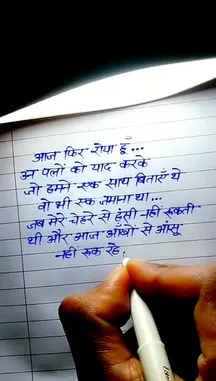 आज फिर रोया हूँ...
उन पलों को याद करके
जो हमने एक साथ बिताएँ थे
वो भी एक जमाना था...
जब मेरे चेहरे से हँसी नहीं रूकती
थी और आज आँखों से आंसू
नहीं रूक रहे.